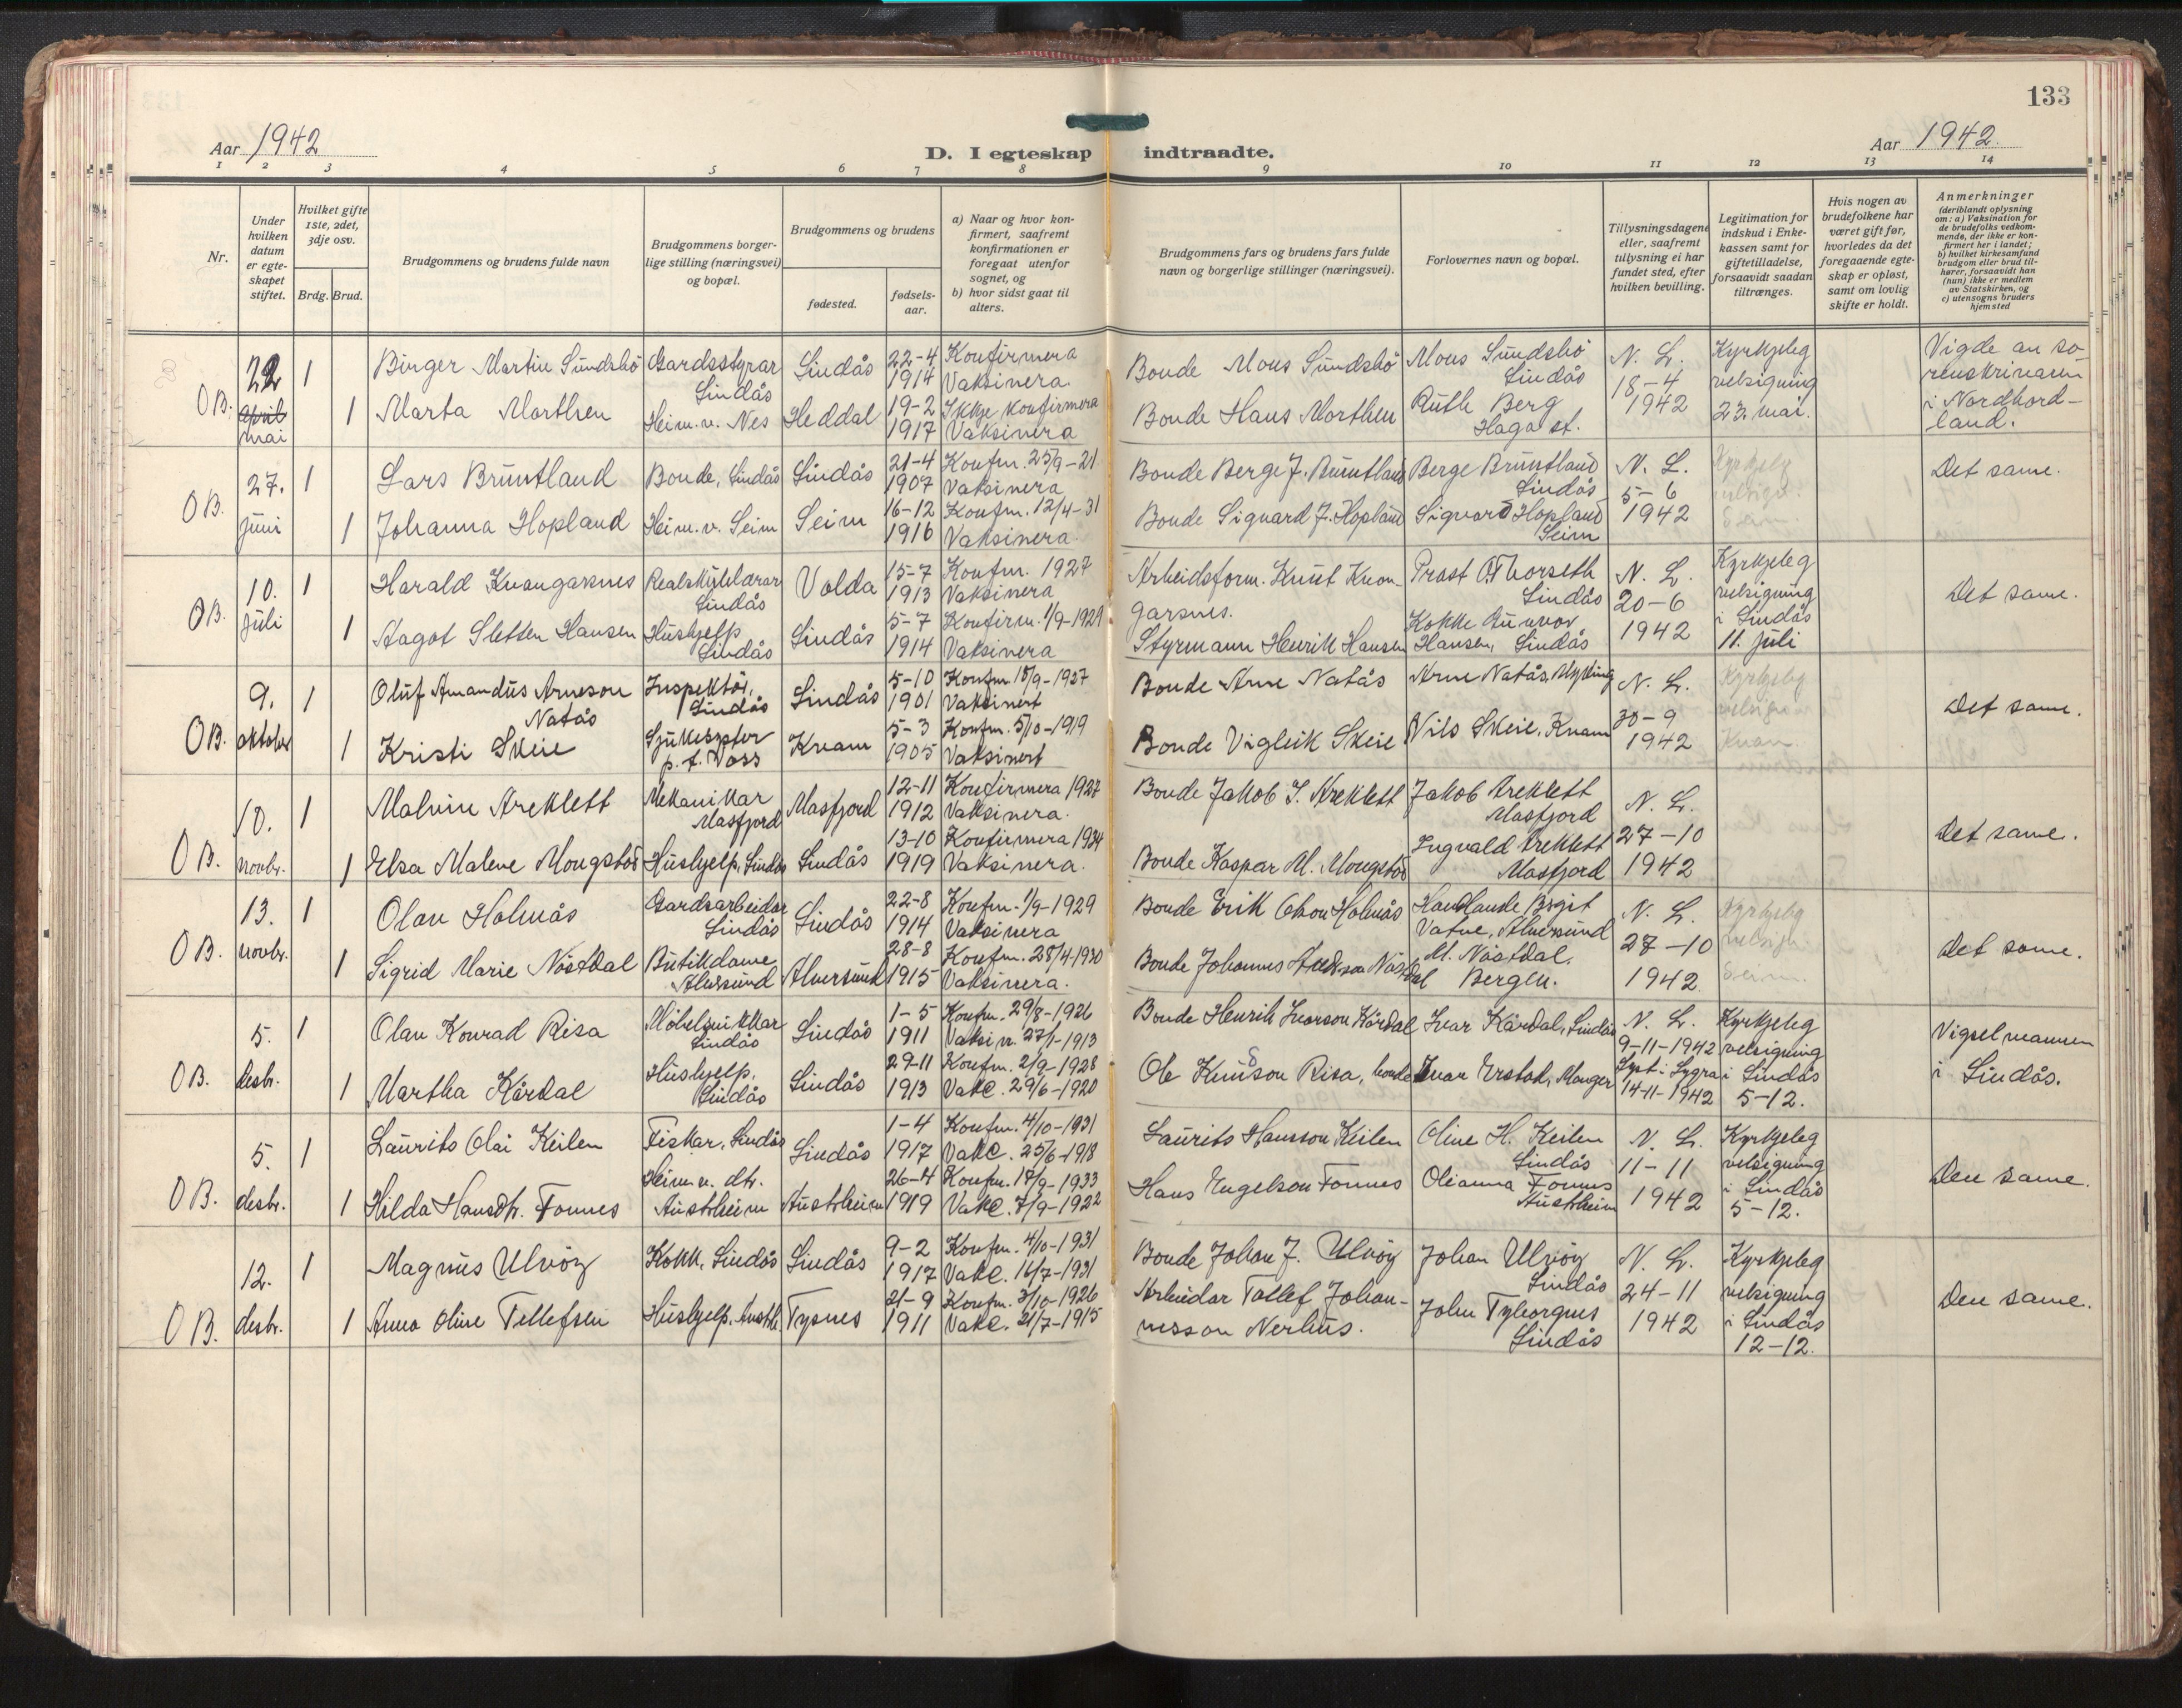 133
Aar 1942
D. I egteskap indtraadte.
Aar 1942.
1 2 3 4 5 6 7 8 9 10 11 12 13 14
Nr.
Under hvilken datum er egteskapet stiftet.
Hvilket gifte 1ste, 2det, 3dje osv.
Brdg. Brud.
Brudgommens og brudens fulde navn
Brudgommens borgerlige stilling (næringsvei) og bopæl.
Brudgommens og brudens
fødested.
fødselsaar.
a) Naar og hvor konfirmert, saafremt konfirmationen er foregaat utenfor sognet, og
b) hvor sidst gaat til alters.
Brudgommens fars og brudens fars fulde navn og borgerlige stillinger (næringsvei).
Forlovernes navn og bopæl.
Tillysningsdagene eller, saafremt tillysning ei har fundet sted, efter hvilken bevilling.
Legitimation for indskud i Enkekassen samt for giftetilladelse, forsaavidt saadan tiltrænges.
Hvis nogen av brudefolkene har været gift før, hvorledes da det foregaaende egteskap er opløst, samt om lovlig skifte er holdt.
Anmerkninger
(deriblandt oplysning om: a) Vaksination for de brudefolks vedkommende, der ikke er konfirmert her i landet; b) hvilket kirkesamfund brudgom eller brud tilhører, forsaavidt han (hun) ikke er medlem av Statskirken, og c) utensogns bruders hjemsted
OB. 22 april mai
1 Birger Martin Sundsbö Gardsstyrar Lindås Lindås 22-4 1914 Konfirmera Vaksinera.
1 Marta Morthen Heim.v. Nes Heddal 19-2 1917 Ikkje konfirmera Vaksinera
Bonde Mons Sundsbö Mons Sundsbö Lindås
Bonde Hans Morthen Ruth Berg Haga st.
N. L. 18-4 1942
Kyrkjeleg velsigning 23. mai.
Vigde av sorenskrivaren i Nordhordland.
OB. 27. juni
1 Lars Bruntland Bonde, Lindås Lindås 21-4 1907 Konfm. 25/9-21 Vaksinera
1 Johanna Hopland Heim.v. Seim Seim 16-12 1916 Konfm. 12/4-31 Vaksinera
Bonde Berge J. Bruntland Berge Bruntland Lindås
Bonde Sigvard J. Hopland Sigvard Hopland Seim
N. L. 5-6 1942
Kyrkjeleg velsign. Seim.
Det same.
OB. 10. juli
1 Harald Kvangarsnes Realskulelærar Lindås Volda 15-7 1913 Konfm. 1927 Vaksinera
1 Aagot Sletten Hansen Hushjelp Lindås Lindås 5-7 1914 Konfirm. 1/9-1929 Vaksinera
Arbeidsform. Knut Kvangarsnes. Prost O. Thorseth Lindås
Styrmann Henrik Hansen Kokke Gunvor Hansen, Lindås
N. L. 20-6 1942
Kyrkjeleg velsigning i Lindås 11. juli
Det same.
OB. 9. oktober
1 Oluf Amandus Arneson Natås Inspektör, Lindås Lindås 5-10 1901 Konfm. Vaksinert
1 Kristi Skeie Sjukesyster p.t. Voss Kvam 5-3 1905 Konfm. 5/10-1919 Vaksinert
Bonde Arne Natås Arne Natås, Mykling
Bonde Vigleik Skeie Nils Skeie, Kvam
N. L. 30-9 1942
Kyrkjeleg velsign. Kvam.
Det same.
OB. 10. novbr.
1 Malvin Areklett Mekanikar Masfjord Masfjord 12-11 1912 Konfirmera 1927 Vaksinera.
1 Elsa Malene Mongstad Hushjelp, Lindås Lindås 13-10 1919 Konfirmera 1934 Vaksinera.
Bonde Jakob I. Areklett Jakob Areklett Masfjord
Bonde Kaspar M. Mongstad Ingvald Areklett Masfjord
N. L. 27-10 1942
Det same.
OB. 13. novbr.
1 Olav Holmås Gardsarbeidar Lindås Lindås 22-8 1914 Konfm. 1/9-1929 Vaksinera
1 Sigrid Marie Nöstdal Butikdame Alversund Alversund 28-8 1915 Konfm. 28/4-1930 Vaksinera.
Bonde Erik Olson Holmås Handlande Birgit Vatne, Alversund
Bonde Johannes Nöstdal M. Nöstdal, Bergen.
N. L. 28-10 1942
Kyrkjeleg velsign. Seim.
Det same.
OB. 5. desbr.
1 Olav Konrad Risa Möbelsnikkar Lindås Lindås 1-5 1911 Konfm. 29/8-1926 Vaksin. 27/1-1913
1 Martha Kårdal Hushjelp, Lindås Lindås 29-11 1913 Konfm. 2/9-1928 Vakc. 29/6-1920
Bonde Henrik Ivarson Kårdal Ivar Kårdal, Lindås
Ole Knudson Risa, bonde Ivar Erstad, Manger
N. L. 9-11-1942 Lyst i Lygra 14-11-1942
Kyrkjeleg velsigning i Lindås 5-12.
Vigselmannen i Lindås.
OB. 5. desbr.
1 Laurits Olai Keilen Fiskar, Lindås Lindås 1-4 1917 Konfm. 4/10-1931 Vakc. 25/6-1918
1 Hilda Hansdtr. Fonnes Heim.v. dtr. Austrheim Austrheim 26-4 1919 Konfm. 17/9-1933 Vakc. 7/9-1922
Laurits Hansson Keilen Oline H. Keilen Lindås
Hans Engelson Fonnes Olianna Fonnes Austrheim
N. L. 11-11 1942
Kyrkjeleg velsigning i Lindås 5-12.
Den same.
OB. 12. desbr.
1 Magnus Ulvöy Kokk, Lindås Lindås 9-2 1917 Konfm. 4/10-1931 Vakc. 16/7-1931
1 Anna Oline Tellefsen Hushjelp, Austrh. Tysnes 21-9 1911 Konfm. 3/10-1926 Vakc. 21/7-1915
Bonde Johan J. Ulvöy Johan Ulvöy Lindås
Arbeidar Tallef Johannesson Nerhus. John Lindås
N. L. 24-11 1942
Kyrkjeleg velsigning i Lindås 12-12.
Den same.